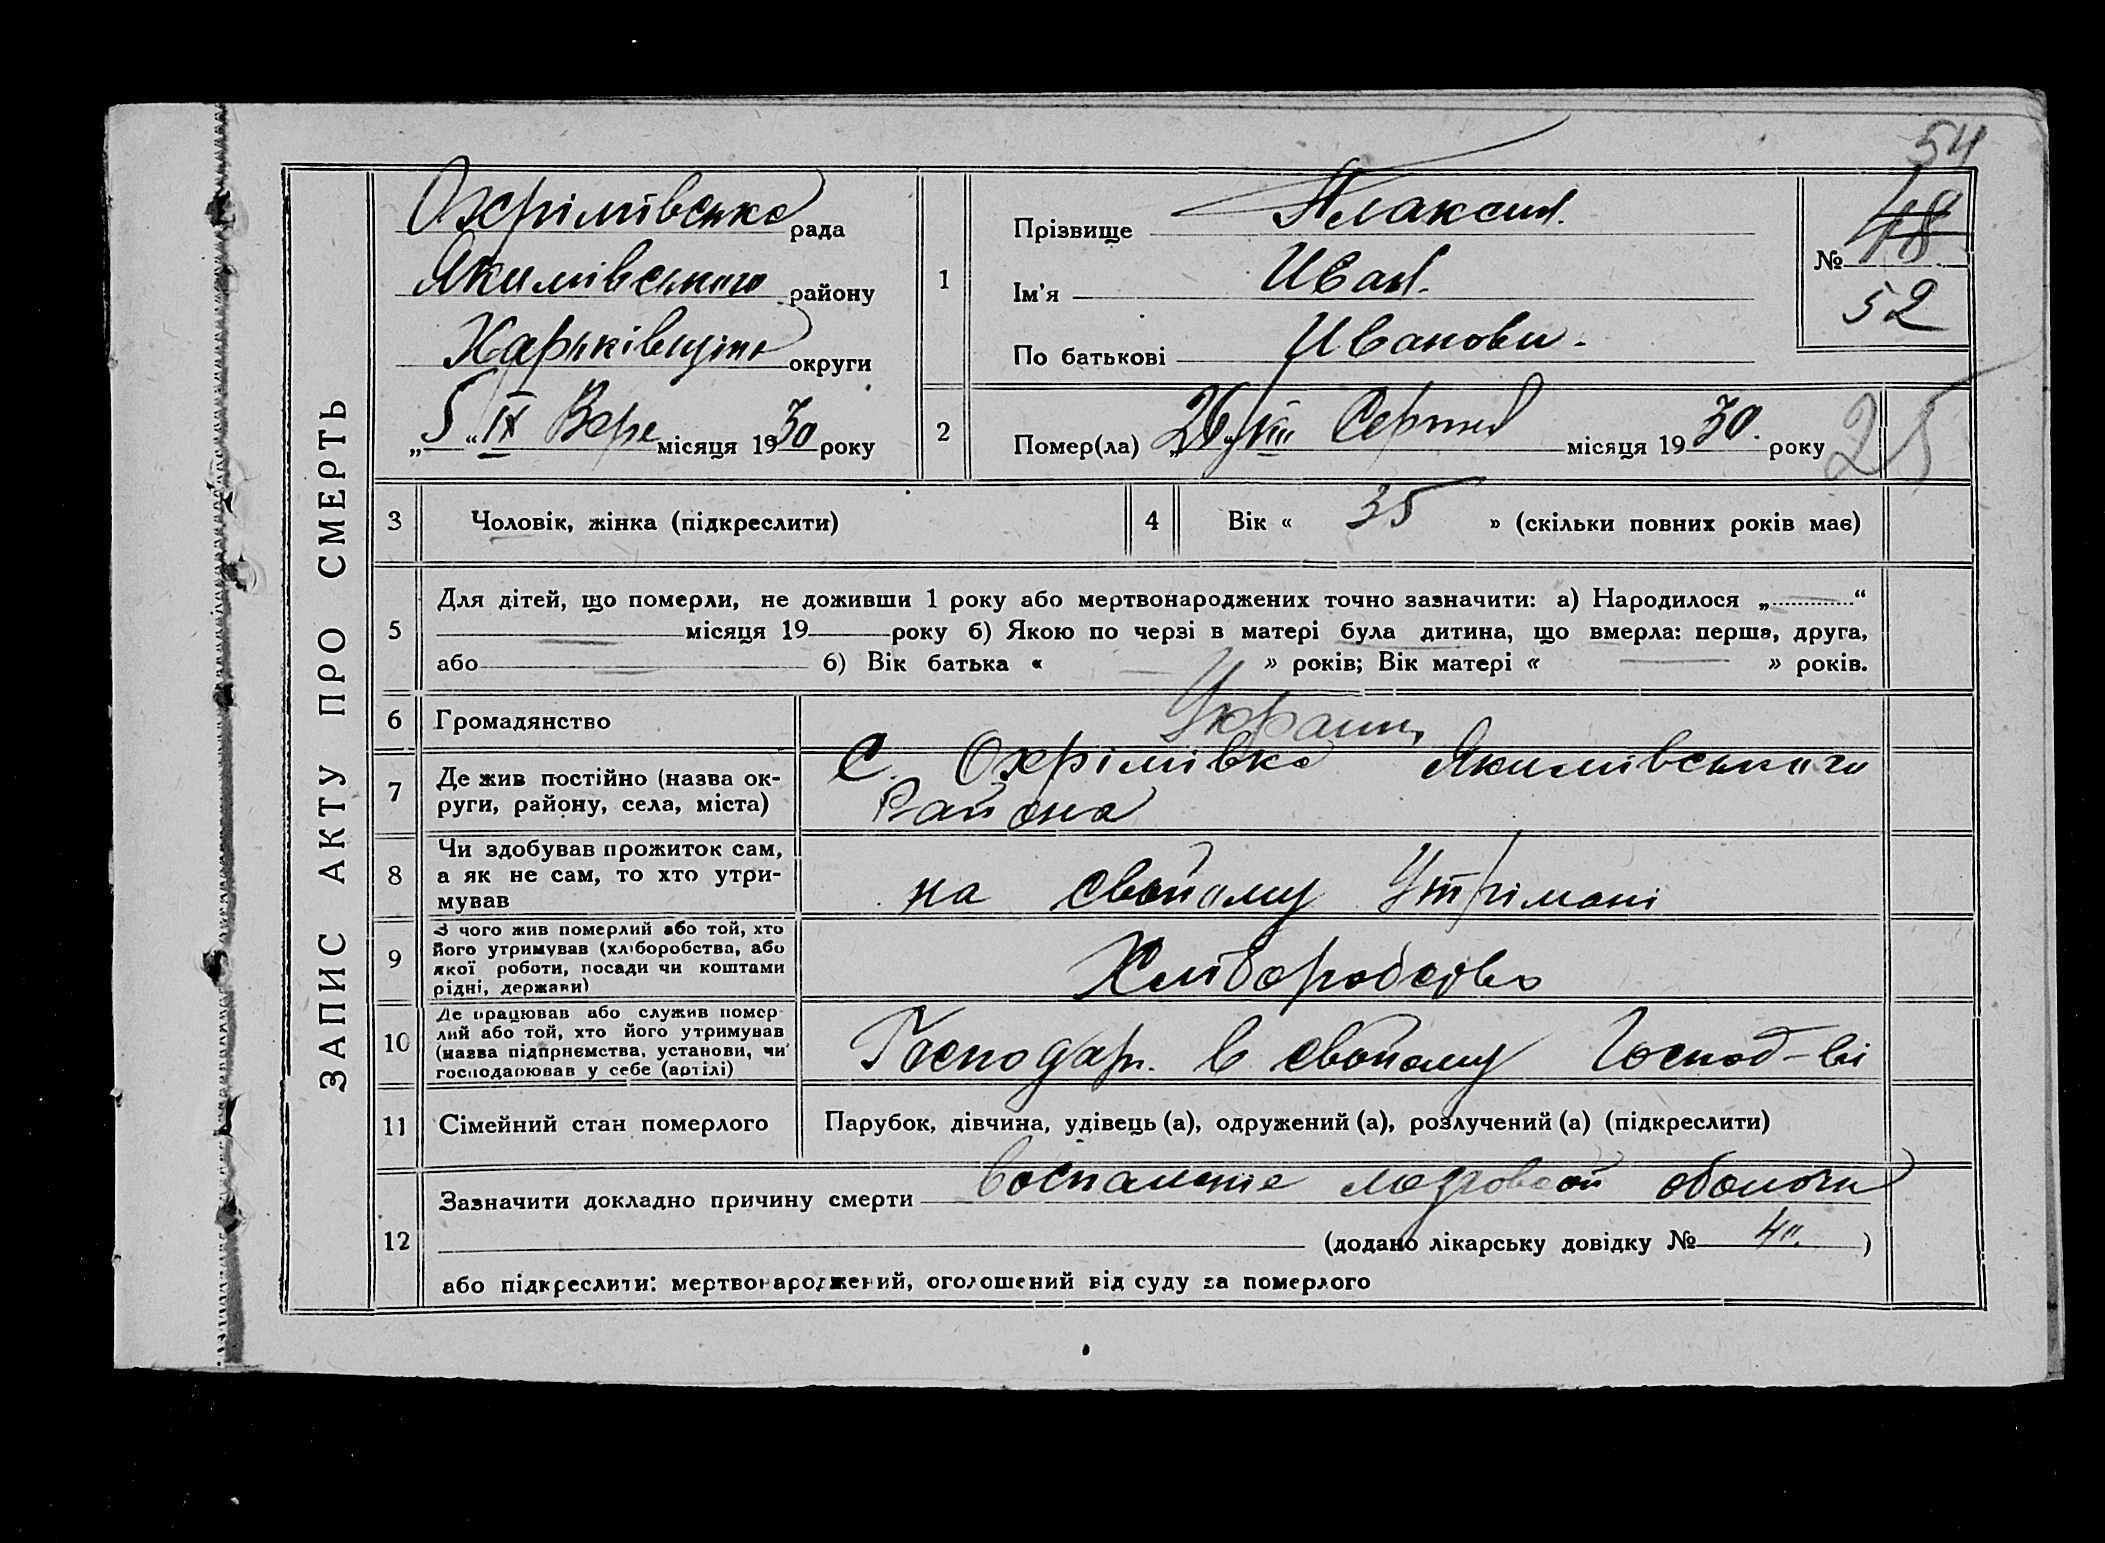 54
ЗАПИС АКТУ ПРО СМЕРТЬ
Охрімівська рада
Якимівського району
округи
„5“ IX Вере місяця 1930 року
1
Прізвище Плаксин.
Ім’я Иван.
По батькові Иванови.
№ 48
52
2
Помер(ла) „26“ VIII Серпня місяця 1930. року
25
3 Чоловік, жінка (підкреслити)
4 Вік « 35 » (скільки повних років має)
5 Для дітей, що померли, не доживши 1 року або мертвонароджених точно зазначити: а) Народилося „ “
місяця 19 року б) Якою по черзі в матері була дитина, що вмерла: перша, друга,
або б) Вік батька « — » років; Вік матері « — » років.
6 Громадянство Украин,
7 Де жив постійно (назва ок-
руги, району, села, міста)
С. Охрімівка Якимівського
Района
8 Чи здобував прожиток сам,
а як не сам, то хто утри-
мував
на свойому Утрімані
9 З чого жив померлий або той, хто
його утримував (хліборобства, або
якої роботи, посади чи коштами
рідні, держави)
Хліборобство
10 Де працював або служив помер-
лий або той, хто його утримував
(назва підприємства, установи, чи
господарював у себе (артілі)
Господар. в свойому Господ-ві
11 Сімейний стан померлого
Парубок, дівчина, удівець (а), одружений (а), розлучений (а) (підкреслити)
12 Зазначити докладно причину смерти Воспаление мозговой оболочи
(додано лікарську довідку № )
або підкреслити: мертвонароджений, оголошений від суду за померлого